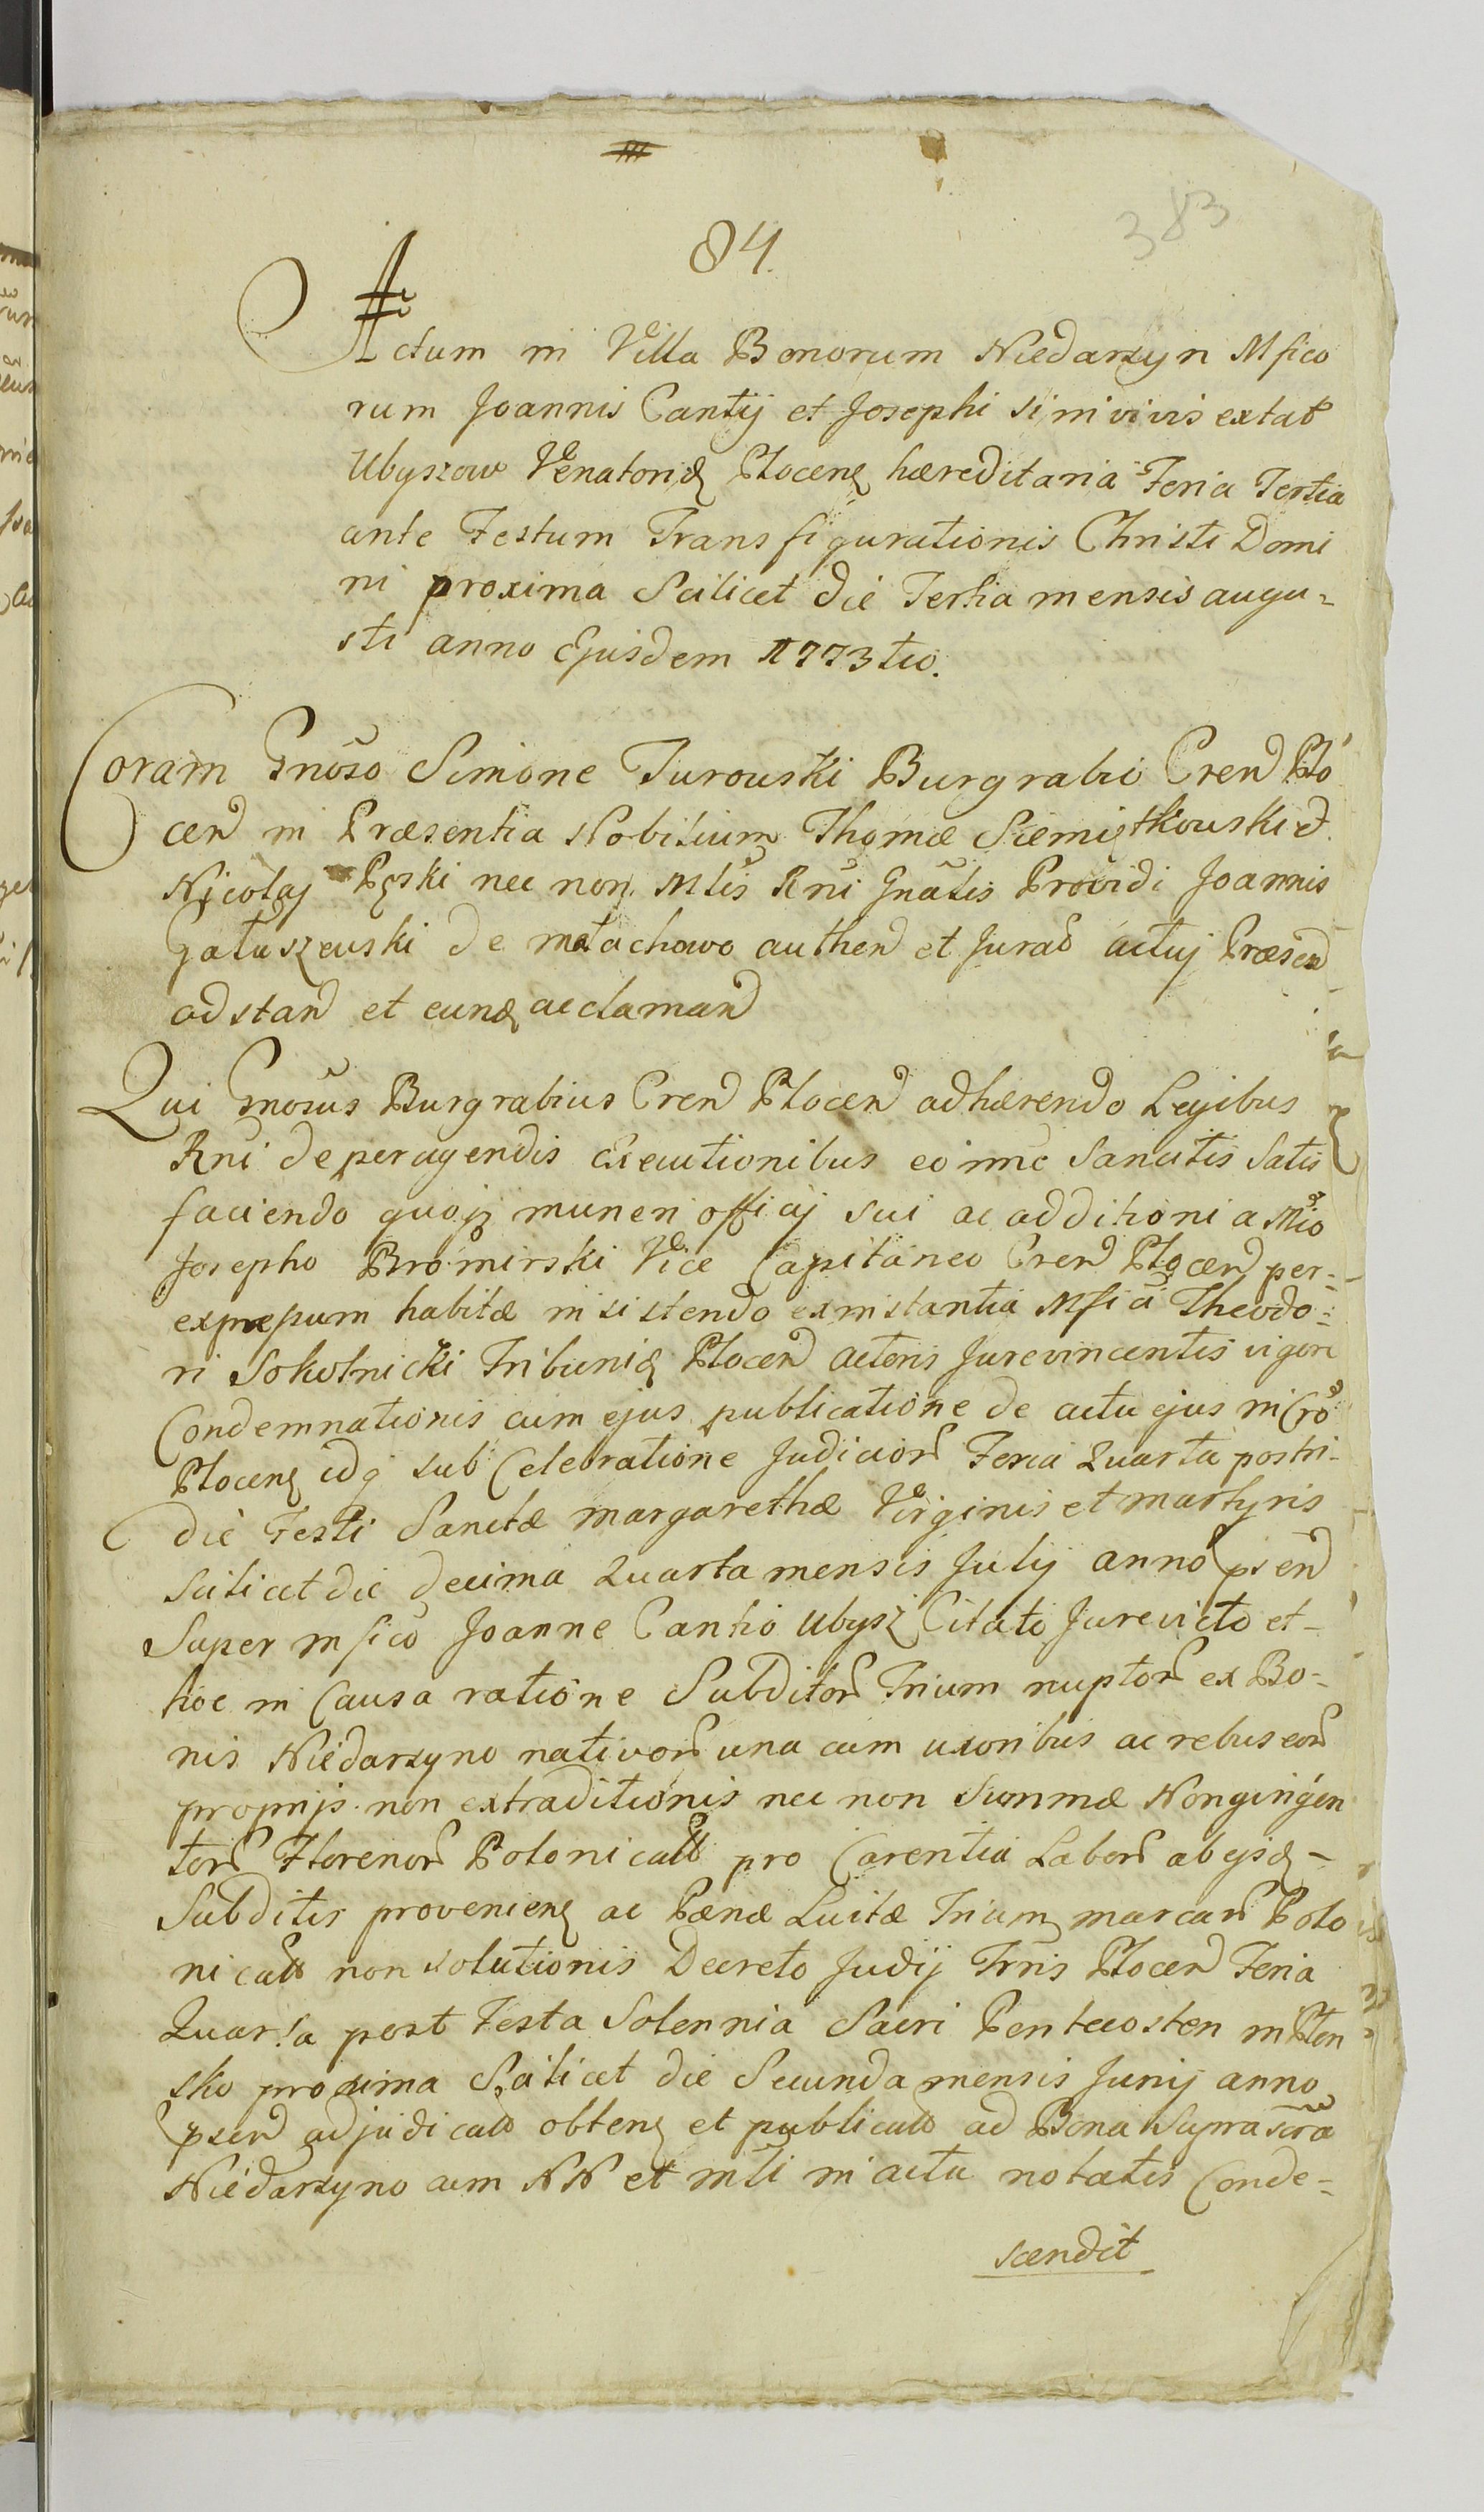 383
84.
Actum in Villa Bonorum Niedarzyn Mfico
rum Joannis Cantij et Josephi si in vivis extat
Ubyszow Venatorid Plocen hæreditaria Feria Tertia
ante Festum Transfigurationis Christi Domi
ni proxima Scilicet die Tertia mensis augu=
sti anno Ejusdem 1773tio.
Coram Gnoso Simone Turowski Burgrabio Cren Plo
cen in Præsentia Nobilium Thomæ Siemiątkowski et
Nicolaj Pęski nec non Mlis Rni Gnalis Providi Joannis
Gałuszewski de małachowo authen et Jurat actuj Præsen
adstan et eund acclaman
Qui Gnosus Burgrabius Cren Plocen adhærendo Legibus
Rni de peragendis Executionibus eo nunc Sancitis Satis
faciendo quoq muneri officij sui ac additioni a Mfco
Josepho Bromirski Vice Capitaneo Cren Plocen per=
expressum habitæ insistendo ex instantia Mfici Theodo=
ri Sokolnicki Tribunid Plocen actoris Jurevincentis vigore
Condemnationis cum ejus publicatione de actu ejus in Cro
Plocen idq sub Celebratione Judicior Feria Quarta postri-
die Festi Sanctæ Margarethæ Virginis et Martyris
Scilicet die decima Quarta mensis Julij anno psen
Super mfico Joanne Cantio Ubysz Citato Jurevicto et-
hoc in Causa ratione Subditor Trium nuptor ex Bo=
nis Niedarzyno nativor una cum uxoribus ac rebus eor
proprijs non extraditionis nec non Summæ Nongingen
tor Florenor Polonicall pro Carentia Labor ab ejsd -
Subditis provenien ac Pænæ Luitæ Trium marcar Polo
nicall non solutionis Decreto Judij Trris Plocen Feria
Quarta post Festa Solennia Sacri Pentecosten in Plon
sko proxima Scilicet die Secunda mensis Junij anno
psen adjudicall obten et publicall ad Bona Suprascra
Niedarzyno cum NN et mlti in actu notatis Conde=
scendit